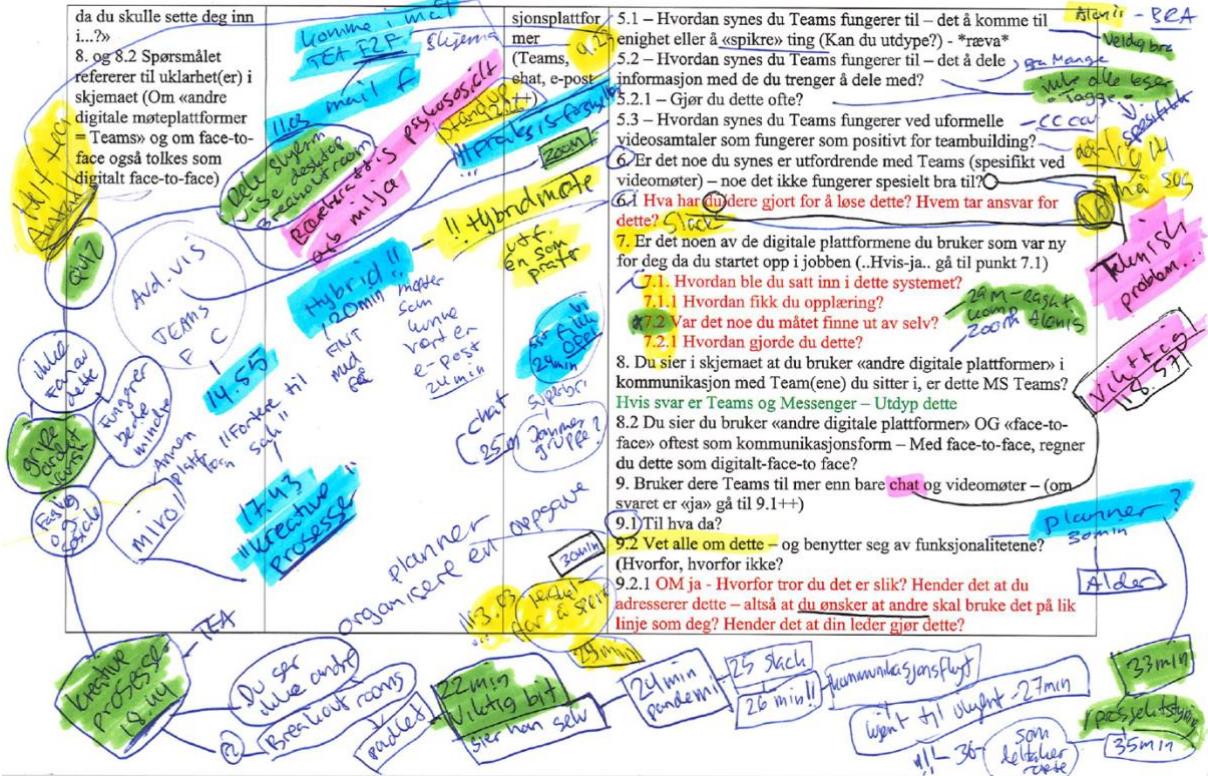 da du skulle sette deg inn
i...?»
8. og 8.2 Spørsmålet
refererer til uklarhet(er) i
skjemaet (Om «andre
digitale møteplattformer
= Teams» og om face-to-
face også tolkes som
digitalt face-to-face)
sjonsplattfor
mer
(Teams,
chat, e-post
++)
5.1 – Hvordan synes du Teams fungerer til – det å komme til
enighet eller å «spikre» ting (Kan du utdype?) - *ræva*
5.2 – Hvordan synes du Teams fungerer til – det å dele
informasjon med de du trenger å dele med?
5.2.1 – Gjør du dette ofte?
5.3 – Hvordan synes du Teams fungerer ved uformelle
videosamtaler som fungerer som positivt for teambuilding?
6. Er det noe du synes er utfordrende med Teams (spesifikt ved
videomøter) – noe det ikke fungerer spesielt bra til?
6.1 Hva har du/dere gjort for å løse dette? Hvem tar ansvar for
dette?
Slack
7. Er det noen av de digitale plattformene du bruker som var ny
for deg da du startet opp i jobben (..Hvis-ja.. gå til punkt 7.1)
7.1. Hvordan ble du satt inn i dette systemet?
7.1.1 Hvordan fikk du opplæring?
*7.2 Var det noe du måtet finne ut av selv?
7.2.1 Hvordan gjorde du dette?
8. Du sier i skjemaet at du bruker «andre digitale plattformer» i
kommunikasjon med Team(ene) du sitter i, er dette MS Teams?
Hvis svar er Teams og Messenger – Utdyp dette
8.2 Du sier du bruker «andre digitale plattformer» OG «face-to-
face» oftest som kommunikasjonsform – Med face-to-face, regner
du dette som digitalt-face-to face?
9. Bruker dere Teams til mer enn bare chat og videomøter – (om
svaret er «ja» gå til 9.1++)
9.1 Til hva da?
9.2 Vet alle om dette – og benytter seg av funksjonalitetene?
(Hvorfor, hvorfor ikke?
9.2.1 OM ja - Hvorfor tror du det er slik? Hender det at du
adresserer dette – altså at du ønsker at andre skal bruke det på lik
linje som deg? Hender det at din leder gjør dette?
komme i mål
TEA F2F
skjema
9.2
11.03 mail
psykososialt
Dele skjerm
Vise desktop
Breakout room
arb miljø
zoom
!! Hybridmøte
utf.
en som
prater
Hybrid!!
20min
FINT
med
på
møter
som
kunne
vært en
e-post
24 min
Avd. vis
TEAMS
P C
14.55
"Fortere til
sak"
ikke
Fan av
dette
Fungerer
bedre
mindre
gripe
ordet
først
Faglig
og
sosialt
Annen
plattform
miro!
17.43
"kreative
prosesser"
chat
25m
Samme
gruppe?
planner
organisere en oppgave
30min
29min
BRA
Veldig bra
Mange
ikke alle leser
Teknisk
problem...
Viktig
18.57!
zoom
planner?
30min
Alder
TEA
kreative
prosesser
8.44
Du ser
ikke andre
Breakout rooms
padlet
22min
Viktig bit
sier han selv
24min
pandemi
25 slack
26 min!!
kommunikasjonsflyt
kjent til ukjent - 27min
!!! - 36
som
deltaker
33min
35min